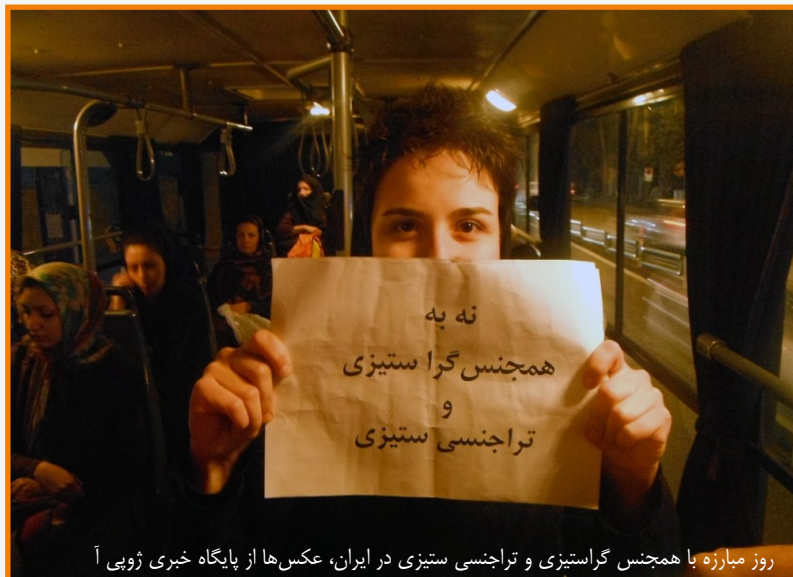 نه به
همجنس گرا ستیزی
و
تراجنسی ستیزی
روز مبارزه با همجنس گراستیزی و تراجنسی ستیزی در ایران، عکس‌ها از پایگاه خبری ژوپی آ